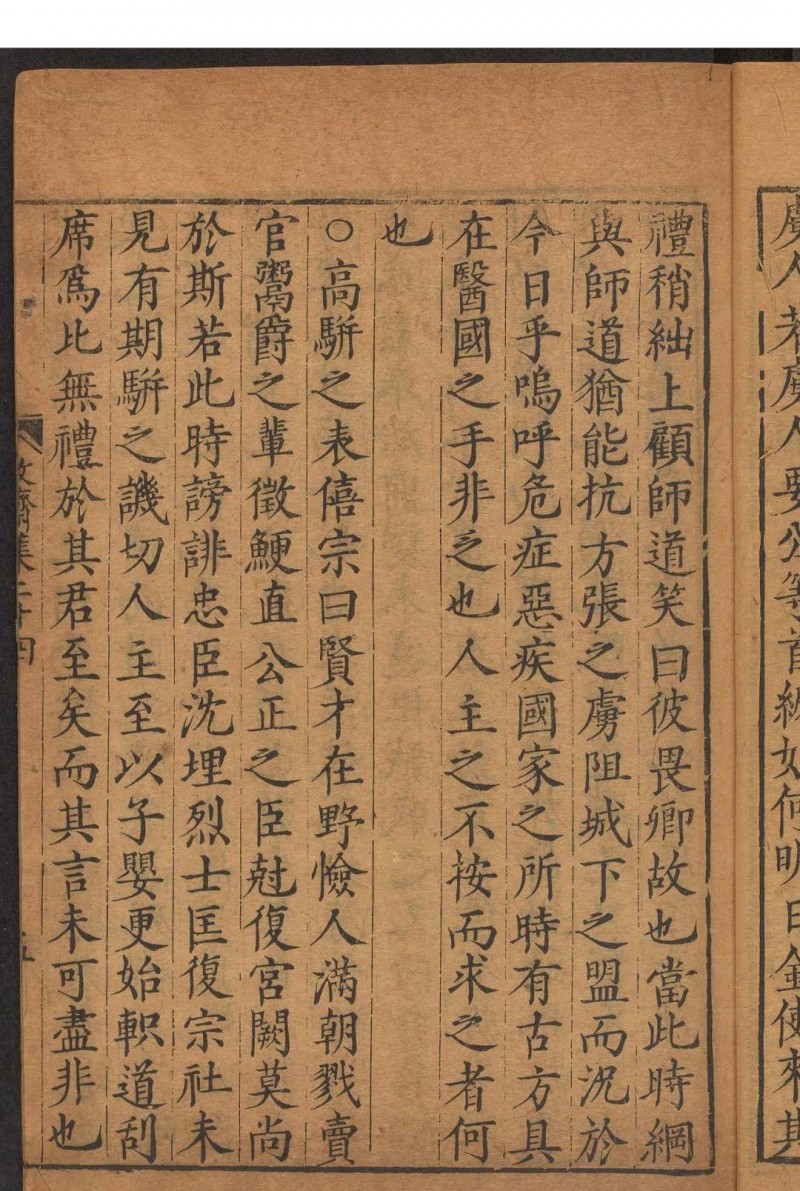 虜人者虜人要公等首級如何明日金使來其
禮稍絀上顧師道笑曰彼畏卿故也當此時綱
與師道猶能抗方張之虜阻城下之盟而況於
今日乎嗚呼危症惡疾國家之所時有古方具
在醫國之手非乏也人主之不按而求之者何
也
○高駢之表僖宗曰賢才在野憸人滿朝戮賣
官鬻爵之輩徵鯁直公正之臣尅復宮闕莫尚
於斯若此時謗誹忠臣沈埋烈士匡復宗社未
見有期駢之譏切人主至以子嬰更始軹道刮
席爲比無禮於其君至矣而其言未可盡非也
齋集 二十四
五